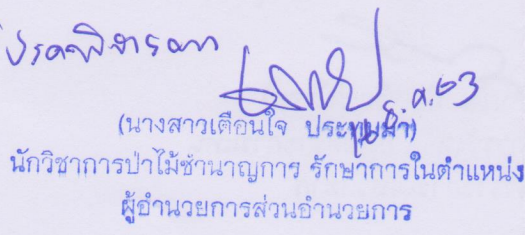 โปรดพิจารณา
(นางสาวเตือนใจ ประทุมมา)
นักวิชาการป่าไม้ชำนาญการ รักษาการในตำแหน่ง
ผู้อำนวยการส่วนอำนวยการ